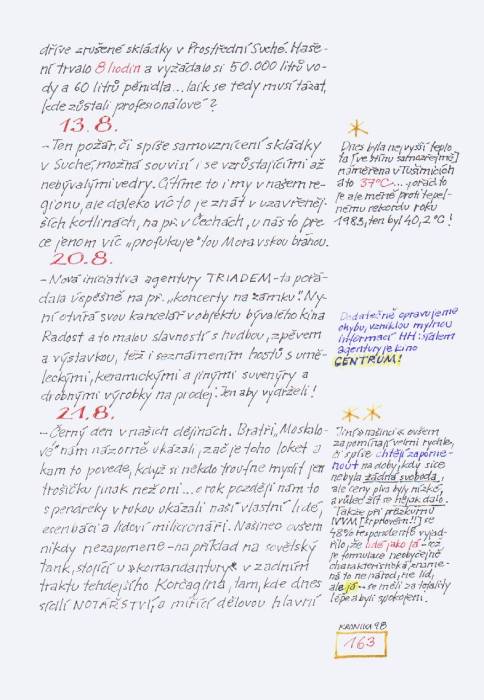 dříve zrušené skládky v Prostřední Suché. Haše-
ní trvalo 8 hodin a vyžádalo si 50.000 litrů vo-
dy a 60 litrů pěnidla... laik se tedy musí tázat,
kde zůstali profesionálové?
13.8.
- Ten požár, či spíše samovznícení skládky
v Suché, možná souvisí i se vzrůstajícími až
nebývalými vedry. Cítíme to i my v našem re-
gionu, ale daleko víc to je znát v uzavřeněj-
ších kotlinách, na př. v Čechách, u nás to pře-
ce jenom víc „profukuje" tou Moravskou bránou.
20.8.
- Nová iniciativa agentury TRIADEM - ta pořá-
dala úspěšně na př. „koncerty na zámku". Ny-
ní otvírá svou kancelář v objektu bývalého kina
Radost a to malou slavností s hudbou, zpěvem
a výstavkou, též i seznámením hostů s umě-
leckými, keramickými a jinými suvenýry a
drobnými výrobky na prodej. Jen aby vydrželi!
21.8.
- Černý den v našich dějinách. Bratři „Moskalo-
vé" nám názorně ukázali, zač je toho loket a
kam to povede, když si někdo troufne myslit jen
trošičku jinak než oni... o rok později nám to
s pendreky v rukou ukázali naši vlastní lidé,
esenbáci a lidoví milicionáři. Našinec ovšem
nikdy nezapomene - na příklad na sovětský
tank, stojící u „komandantury" v zadním
traktu tehdejšího Korčagina, tam, kde dnes
sídlí NOTÁŘSTVÍ, a mířící dělovou hlavní
*
Dnes byla nejvyšší teplo-
ta [ve stínu samozřejmě]
naměřena v Tušimicích
a to 37°C... pořád to
je ale méně proti tepel-
nému rekordu roku
1983, ten byl 40,2°C!
Dodatečně opravujeme
chybu, vzniklou mylnou
informací HH: sídlem
agentury je kino
CENTRUM!
**
Jiní našinci ovšem
zapomínají velmi rychle,
či spíše chtějí zapome-
nout na doby, kdy sice
nebyla žádná svoboda,
ale ceny piva byly nízké,
a vůbec žít se nějak dalo.
Takže při průzkumu
IVVM se
48% respondentů vyjád-
řilo, že lidé jako já - což
je formulace neobyčejně
charakteristická, zname-
ná to ne národ, ne lid,
ale já - se měli za totality
lépe a byli spokojeni.
KRONIKA 98
163